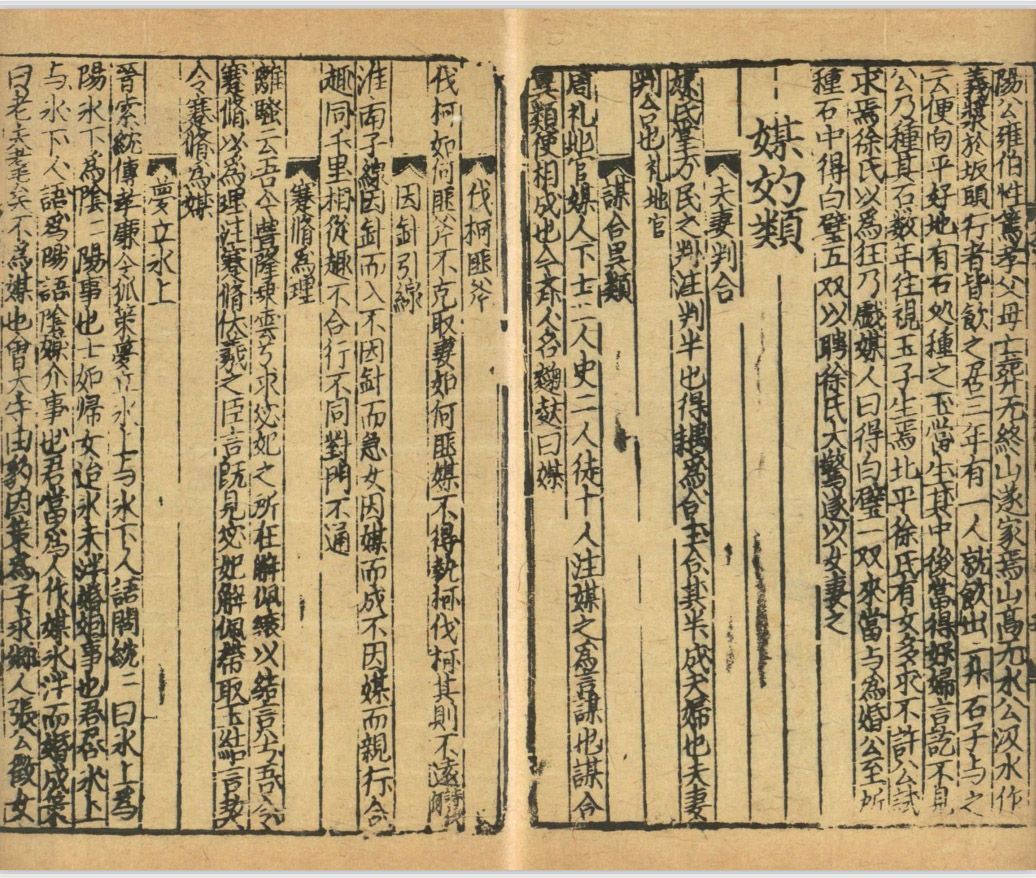 陽公雍伯性篤孝父母亡葬无終山遂家焉山高无水公汲水作
義漿於坂頭行者皆飲之居三年有一人就飲出一升石子与之
云便向平好地有石処種之玉當生其中後當得好婦言訖不見
公乃種其石数年往視玉子生焉北平徐氏有女多求不許公試
求焉徐氏以為狂乃戲媒人曰得白璧一双來當与為婚公至所
種石中得白璧五双以聘徐氏大驚遂以女妻之
媒妁類
夫妻判合
媒氏掌万民之判注判半也得耦為合主合其半成夫婦也夫妻
判合也礼地官
謀合異類
周礼地官媒人下士二人史二人徒十人注媒之為言謀也謀合
異類使相成也今斉人名麹麩曰媒
伐柯匪斧
伐柯如何匪斧不克取妻如何匪媒不得執柯伐柯其則不遠
因針引線
淮南子線因針而入不因針而急女因媒而成不因媒而親行合
趣同千里相從趣不合行不同對門不通
蹇脩為理
離騷云吾令豊隆乗雲兮求宓妃之所在解佩纕以結言兮吾令
蹇脩以為理注蹇脩伏羲之臣言既見宓妃解佩帶取玉結言契
令蹇脩為媒
夢立氷上
晉索紞傳孝廉令狐策夢立氷上与氷下人語問紞紞曰氷上為
陽氷下為陰陰陽事也士如歸女迨氷未泮婚姻事也君在氷上
与氷下人語為陽語陰媒介事也君當為人作媒氷泮而婚成策
曰老夫耄矣不為媒也會太守田豹因策為子求鄉人張公徵女